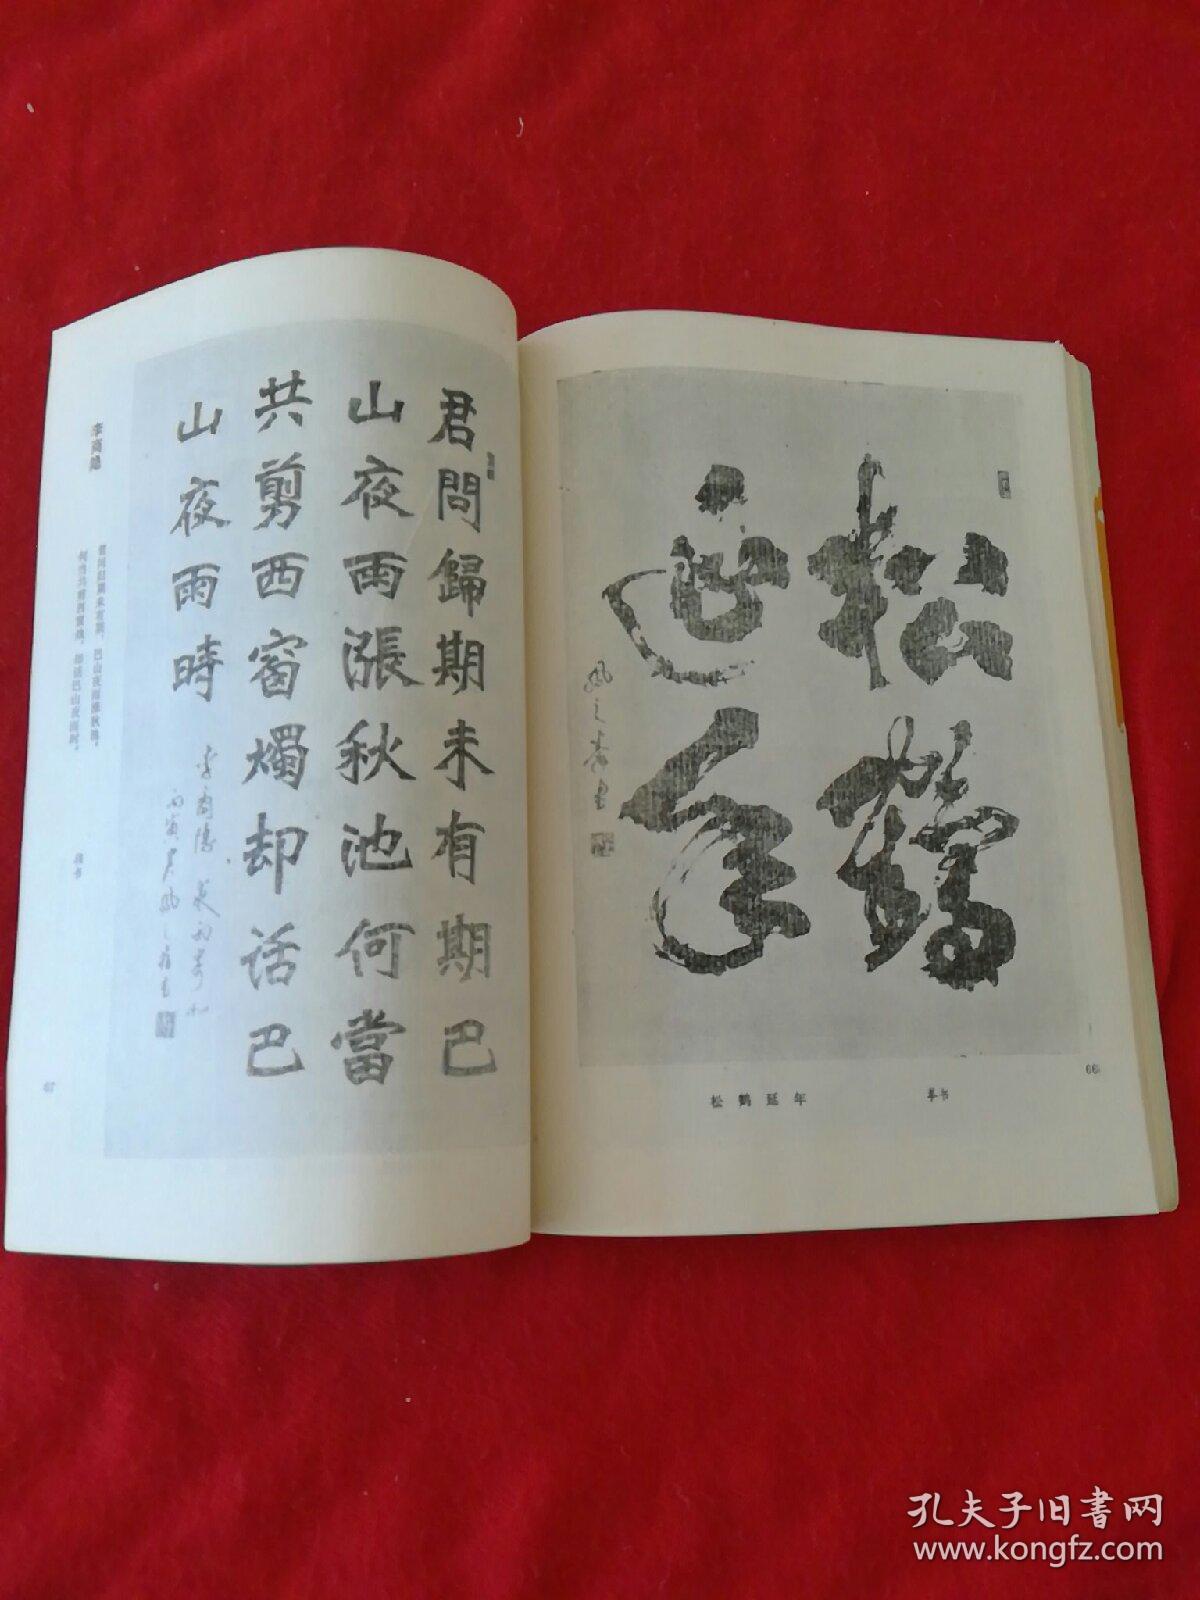 松鶴
延年
松鹤延年
草书
66
君問歸期未有期巴
山夜雨漲秋池何當
共剪西窗燭却話巴
山夜雨時
李商隱夜雨寄北
李商隐
君问归期未有期，巴山夜雨涨秋池。
何当共剪西窗烛，却话巴山夜雨时。
67
孔夫子旧书网
www.kongfz.com